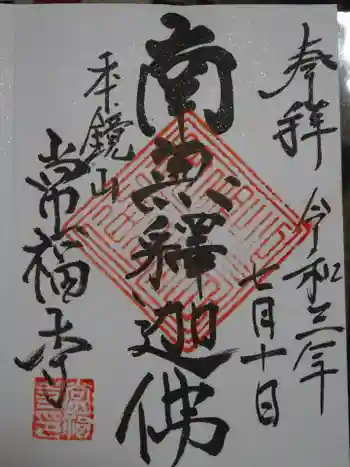 奉拝
令和三年
七月十日
南無釋迦佛
本鏡山
常福寺